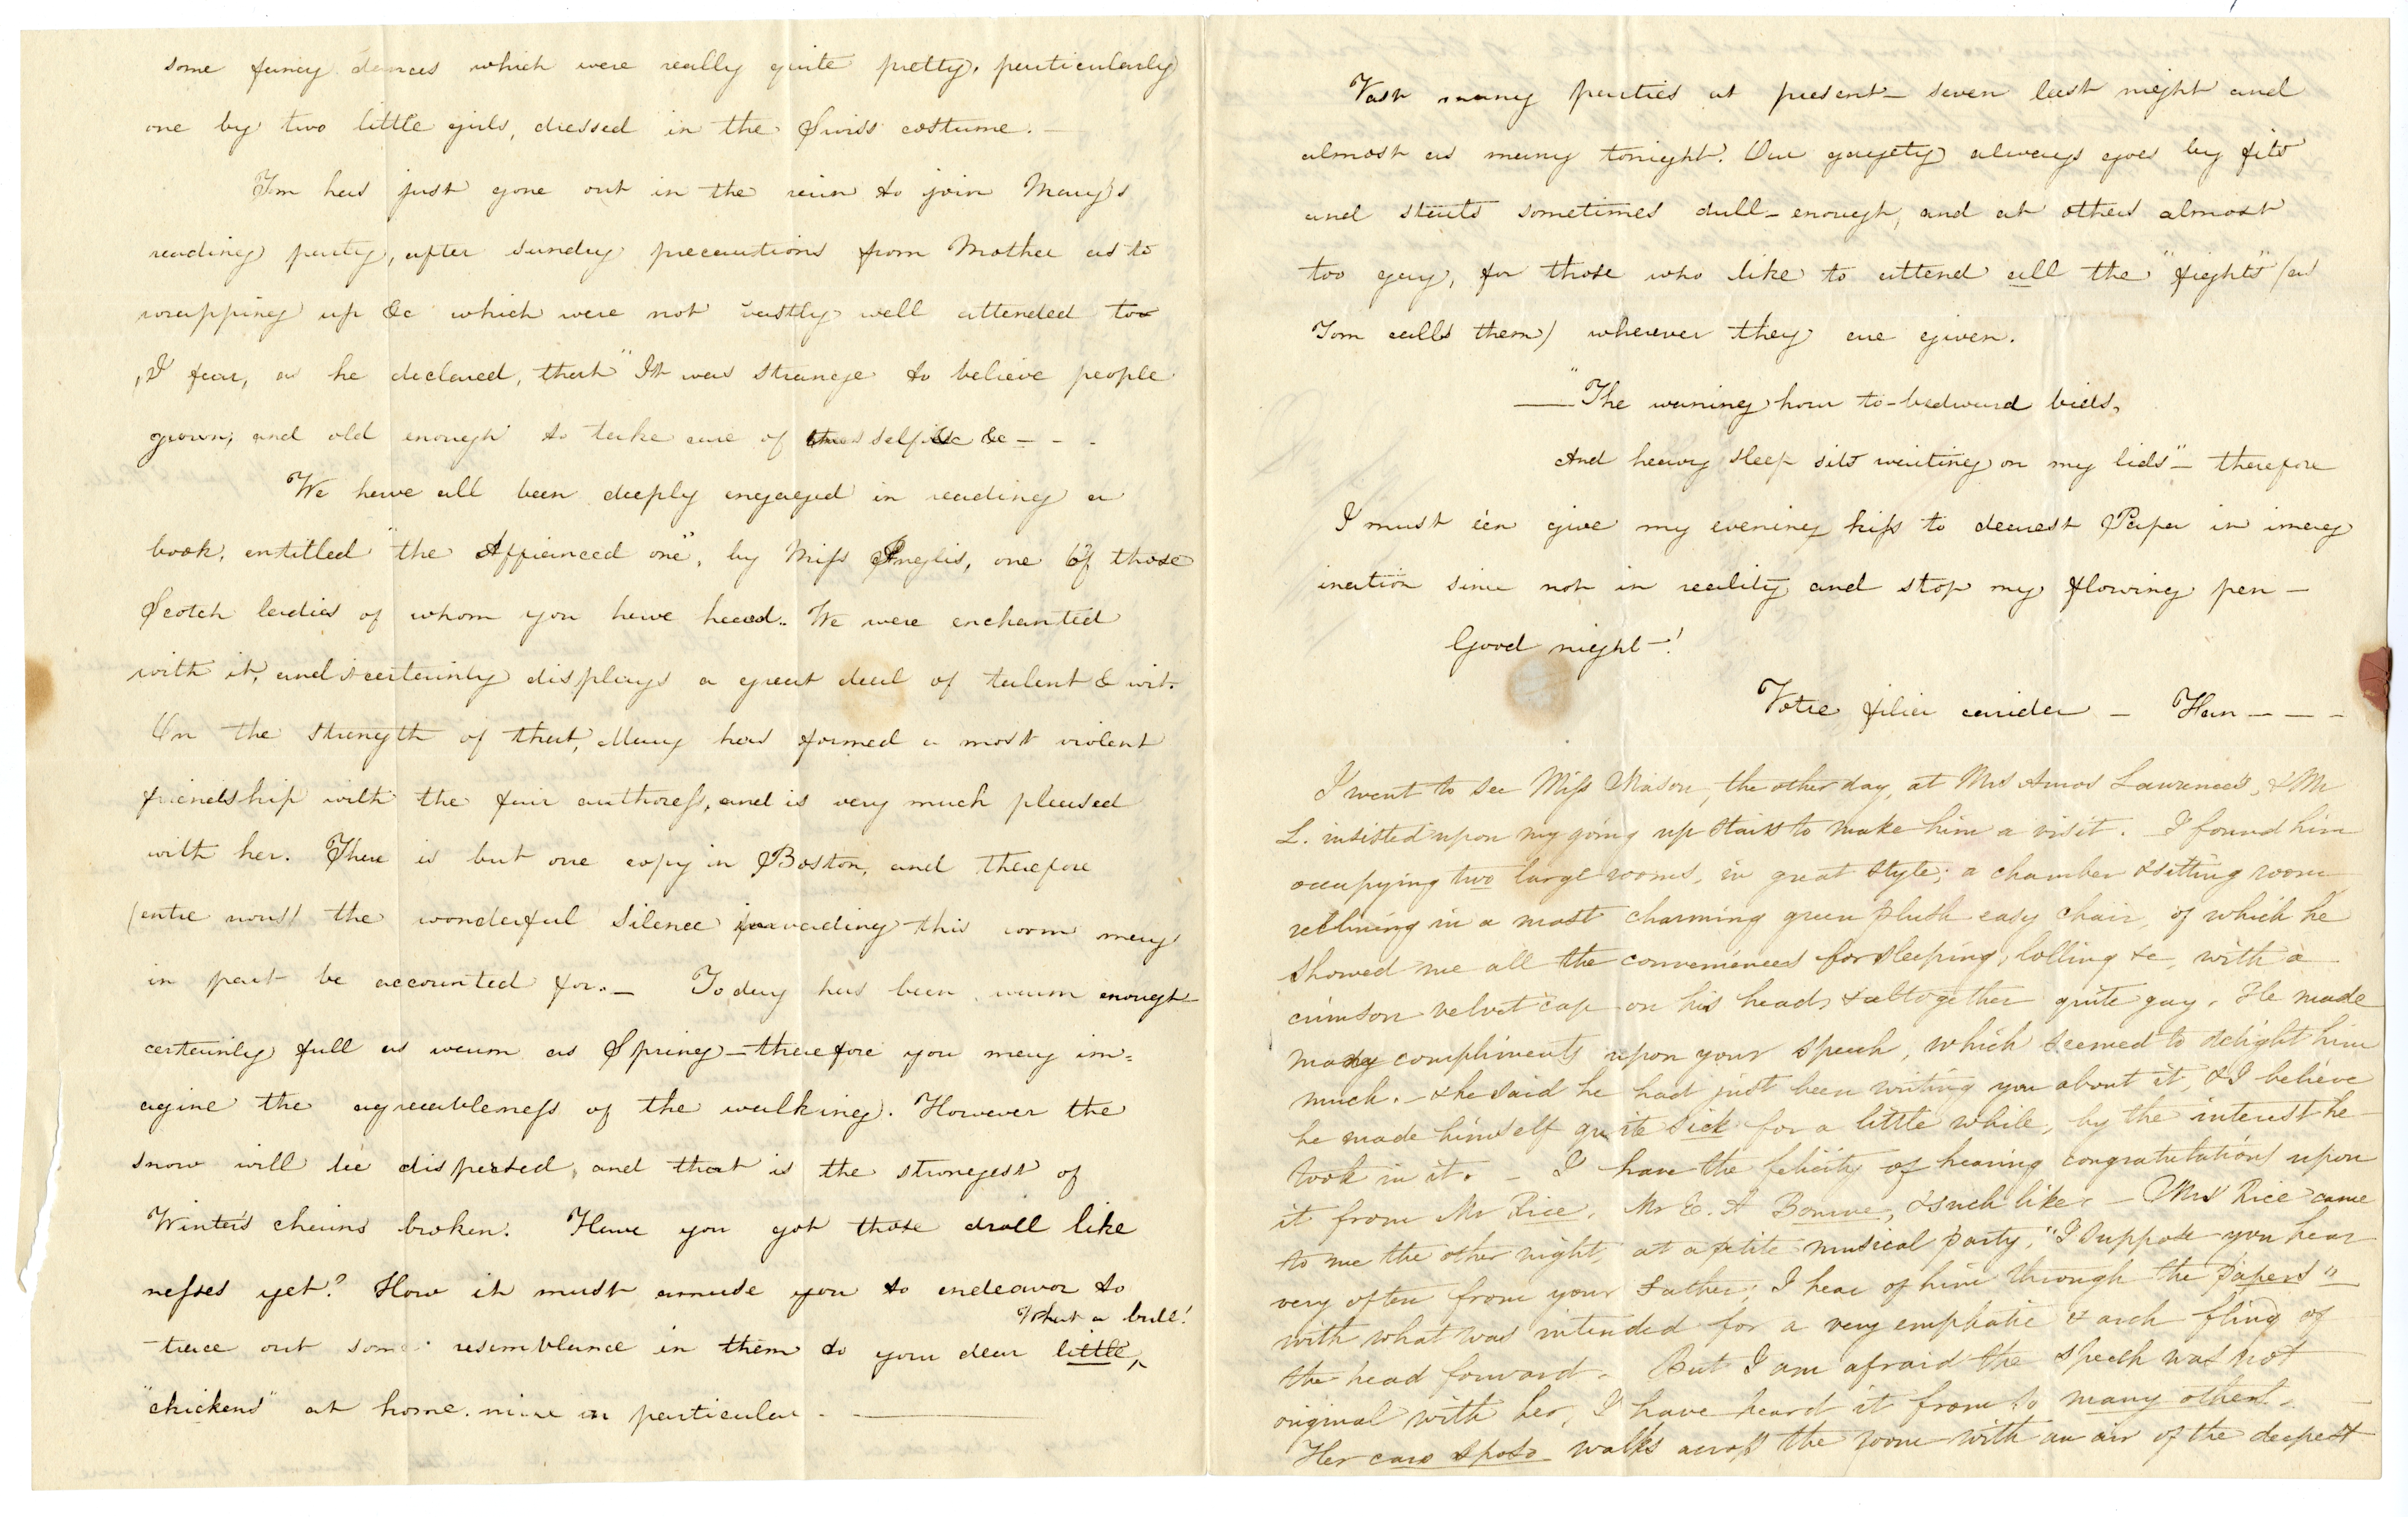 some fancy dances which were really quite pretty, particularly
one by two little girls, dressed in the Swiss costume. —
Tom has just gone out in the rain to join Mary's
reading party, after sundry precautions from Mother as to
wrapping up &c which were not vastly well attended to
, I fear, as he declared, that "It was strange to believe people
grown, and old enough to take care of &c — - -
We have all been deeply engaged in reading a
book, entitled "the Affianced one", by Miss Inglis, one of those
Scotch ladies of whom you have heard. We were enchanted
with it, and it certainly displays a great deal of talent & wit.
On the strength of that, Mary has formed a most violent
friendship with the fair authoress, and is very much pleased
with her. There is but one copy in Boston, and therefore
(entre nous) the wonderful silence pervading this room may
in part be accounted for. — Today has been warm enough
certainly full as warm as Spring — therefore you may im=
agine the agreeableness of the walking. However the
snow will be dispersed, and that is the strongest of
Winter's chains broken. Have you got those droll like
nesses yet? How it must amuse you to endeavor to
What a bull!
trace out some resemblance in them to your dear little ^
"chickens" at home. mine in particular. —
Vast many parties at present — seven last night and
almost as many tonight. Our gayety always goes by fits
and starts sometimes dull-enough, and at others almost
too gay, for those who like to attend all the "fights" (as
Tom calls them) wherever they are given.
— "The waning hour to-bedward bids,
And heavy sleep sits waiting on my lids" — therefore
I must e'en give my evening kiss to dearest Papa in imag
ination since not in reality and stop my flowing pen —
Good night —!
Votre filia — Han — — —
I went to see Miss Mason, the other day, at Mrs Amos Lawrence's, & Mr
L. insisted upon my going up stairs to make him a visit. I found him
occupying two large rooms, in great style; a chamber & sitting room
reclining in a most charming green plush easy chair, of which he
showed me all the conveniences for sleeping, lolling &c, with a
crimson velvet cap on his head, & altogether quite gay. He made
many compliments upon your speech, which seemed to delight him
much. — & he said he had just been writing you about it, & I believe
he made himself quite sick for a little while, by the interest he
took in it. — I have the felicity of hearing congratulations upon
it from Mr Rice, Mr E. A & such like. — Mrs Rice came
to me the other night, at a petite musical party, "I suppose you hear
very often from your Father; I hear of him through the papers"
with what was intended for a very emphatic & arch fling of
the head forward. But I am afraid the speech was not
original with her, I have heard it from so many others.
Her caro sposo walks across the room with an air of the deepest